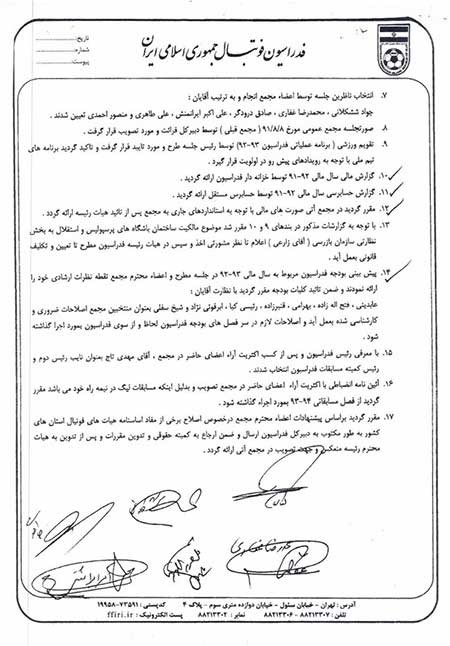 تاریخ:
شماره:
پیوست:
فدراسیون فوتبال جمهوری اسلامی ایران
۷. انتخاب ناظرین جلسه توسط اعضاء مجمع انجام و به ترتیب آقایان :
جواد ششکلانی ، محمدرضا غفاری ، صادق درودگر ، علی اکبر ایرانمنش ، علی طاهری و منصور احمدی تعیین شدند .
۸. صورتجلسه مجمع عمومی مورخ ۹۱/۸/۸ ( مجمع قبلی ) توسط دبیرکل قرائت و مورد تصویب قرار گرفت .
۹. تقویم ورزشی ( برنامه عملیاتی فدراسیون ۹۳-۹۲) توسط رئیس جلسه طرح و مورد تایید قرار گرفت و تاکید گردید برنامه های
تیم ملی با توجه به رویدادهای پیش رو در اولویت قرار گیرد .
۱۰. گزارش مالی سال مالی ۹۲-۹۱ توسط خزانه دار فدراسیون ارائه گردید .
۱۱. گزارش حسابرسی سال مالی ۹۲-۹۱ توسط حسابرس مستقل ارائه گردید .
۱۲. مقرر گردید در مجمع آتی صورت های مالی با توجه به استانداردهای جاری به مجمع پس از تائید هیات رئیسه ارائه گردد .
۱۳. با توجه به گزارشات مذکور در بندهای ۹ و ۱۰ مقرر شد موضوع مالکیت ساختمان باشگاه های پرسپولیس و استقلال به بخش
نظارتی سازمان بازرسی ( آقای زارعی ) اعلام تا نظر مشورتی اخذ و سپس در هیات رئیسه فدراسیون مطرح تا تعیین و تکلیف
قانونی بعمل آید .
۱۴. پیش بینی بودجه فدراسیون مربوط به سال مالی ۹۳-۹۲ در جلسه مطرح و اعضاء محترم مجمع نقطه نظرات ارشادی خود را
ارائه نمودند و ضمن تائید کلیات بودجه مقرر گردید با نظارت آقایان :
عابدینی ، فتح اله زاده ، بهرامی ، قنبرزاده ، رئیسی کیا ، ابرقوئی نژاد و شیخ سفلی بعنوان منتخبین مجمع اصلاحات ضروری و
کارشناسی شده بعمل آید و اصلاحات لازم در سر فصل های بودجه فدراسیون لحاظ و از سوی فدراسیون بمورد اجرا گذاشته
شود .
۱۵. با معرفی رئیس فدراسیون و پس از کسب اکثریت آراء اعضای حاضر در مجمع ، آقای مهدی تاج بعنوان نایب رئیس دوم و
رئیس کمیته مسابقات فدراسیون انتخاب شدند .
۱۶. آئین نامه انضباطی با اکثریت آراء اعضای حاضر در مجمع تصویب و بدلیل اینکه مسابقات لیگ در نیمه راه خود می باشد مقرر
گردید از فصل مسابقاتی ۹۴-۹۳ بمورد اجراء گذاشته شود .
۱۷. مقرر گردید براساس پیشنهادات اعضاء محترم مجمع درخصوص اصلاح برخی از مفاد اساسنامه هیات های فوتبال استان های
کشور به طور مکتوب به دبیرکل فدراسیون ارسال و ضمن ارجاع به کمیته حقوقی و تدوین مقررات و پس از تدوین به هیات
محترم رئیسه منعکس و جهت تصویب در مجمع آتی ارائه گردد .
آدرس : تهران - خیابان سئول - خیابان دوازده متری سوم - پلاک ۴ کدپستی : ۷۳۵۹۱-۱۹۹۵۸
تلفن : ۸۸۲۱۳۳۰۷ - ۸۸۲۱۳۳۰۶ نمابر : ۸۸۲۱۳۳۰۲ پست الکترونیک : ffiri.ir